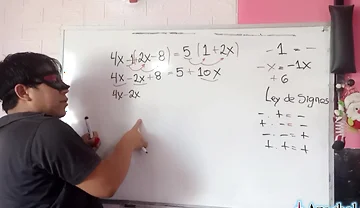 4x - 1(2x - 8) = 5 (1 + 2x)
4x - 2x + 8 = 5 + 10x
4x - 2x
- 1 = -
- x = -1x
+ 6
Ley de Signos
- · + = -
+ · - = -
- · - = +
+ · + = +